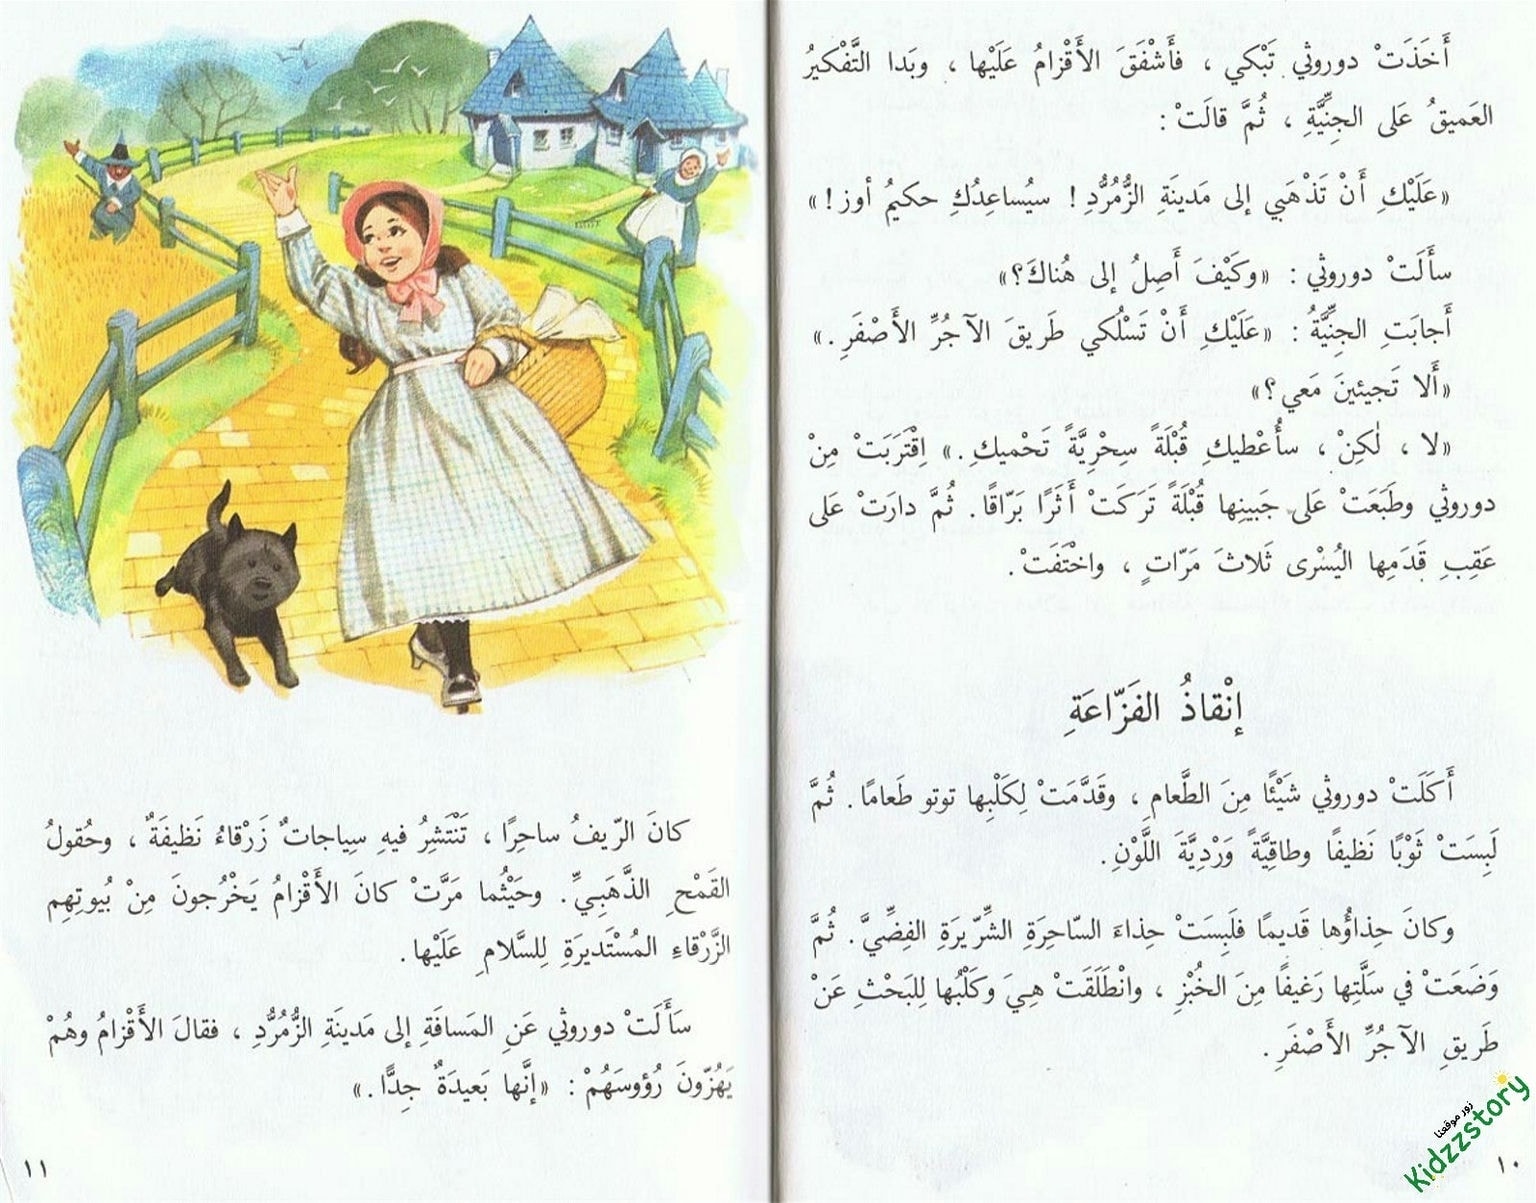 أَخَذَتْ دوروثي تَبْكي ، فأَشْفَقَ الأَقْزامُ عَلَيْها ، وبَدا التَّفْكيرُ
العَميقُ عَلى الجِنِّيَّةِ ، ثُمَّ قالَتْ :
«عَلَيْكِ أَنْ تَذْهَبي إلى مَدينَةِ الزُّمُرُّدِ ! سيُساعِدُكِ حكيمُ أوز !»
سأَلَتْ دوروثي : «وكَيْفَ أَصِلُ إلى هُناكَ؟»
أَجابَتِ الجِنِّيَّةُ : «عَلَيْكِ أَنْ تَسْلُكي طَريقَ الآجُرِّ الأَصْفَرِ .»
«أَلا تَجيئينَ مَعي ؟»
«لا ، لٰكِنْ ، سأُعْطيكِ قُبْلَةً سِحْرِيَّةً تَحْميكِ .» اِقْتَرَبَتْ مِنْ
دوروثي وطَبَعَتْ عَلى جَبينِها قُبْلَةً تَرَكَتْ أَثَرًا بَرّاقًا . ثُمَّ دارَتْ عَلى
عَقِبِ قَدَمِها اليُسْرى ثَلاثَ مَرّاتٍ ، واخْتَفَتْ .
إنْقاذُ الفَزّاعَةِ
أَكَلَتْ دوروثي شَيْئًا مِنَ الطَّعامِ ، وقَدَّمَتْ لِكَلْبِها توتو طَعامًا . ثُمَّ
لَبِسَتْ ثَوْبًا نَظيفًا وطاقِيَّةً وَرْدِيَّةَ اللَّوْنِ .
وكانَ حِذاؤُها قَديمًا فلَبِسَتْ حِذاءَ السّاحِرَةِ الشِّرّيرَةِ الفِضِّيَّ . ثُمَّ
وَضَعَتْ في سَلَّتِها رَغيفًا مِنَ الخُبْزِ ، وانْطَلَقَتْ هِيَ وكَلْبُها لِلبَحْثِ عَنْ
طَريقِ الآجُرِّ الأَصْفَرِ .
زور موقعنا
Kidzzstory
١٠
كانَ الرّيفُ ساحِرًا ، تَنْتَشِرُ فيهِ سِياجاتٌ زَرْقاءُ نَظيفَةٌ ، وحُقولُ
القَمْحِ الذَّهَبِيِّ . وحَيْثُما مَرَّتْ كانَ الأَقْزامُ يَخْرُجونَ مِنْ بُيوتِهِم
الزَّرْقاءِ المُسْتَديرَةِ لِلسَّلامِ عَلَيْها .
سَأَلَتْ دوروثي عَنِ المَسافَةِ إلى مَدينَةِ الزُّمُرُّدِ ، فقالَ الأَقْزامُ وهُمْ
يَهُزّونَ رُؤوسَهُمْ : «إنَّها بَعيدَةٌ جِدًّا .»
١١